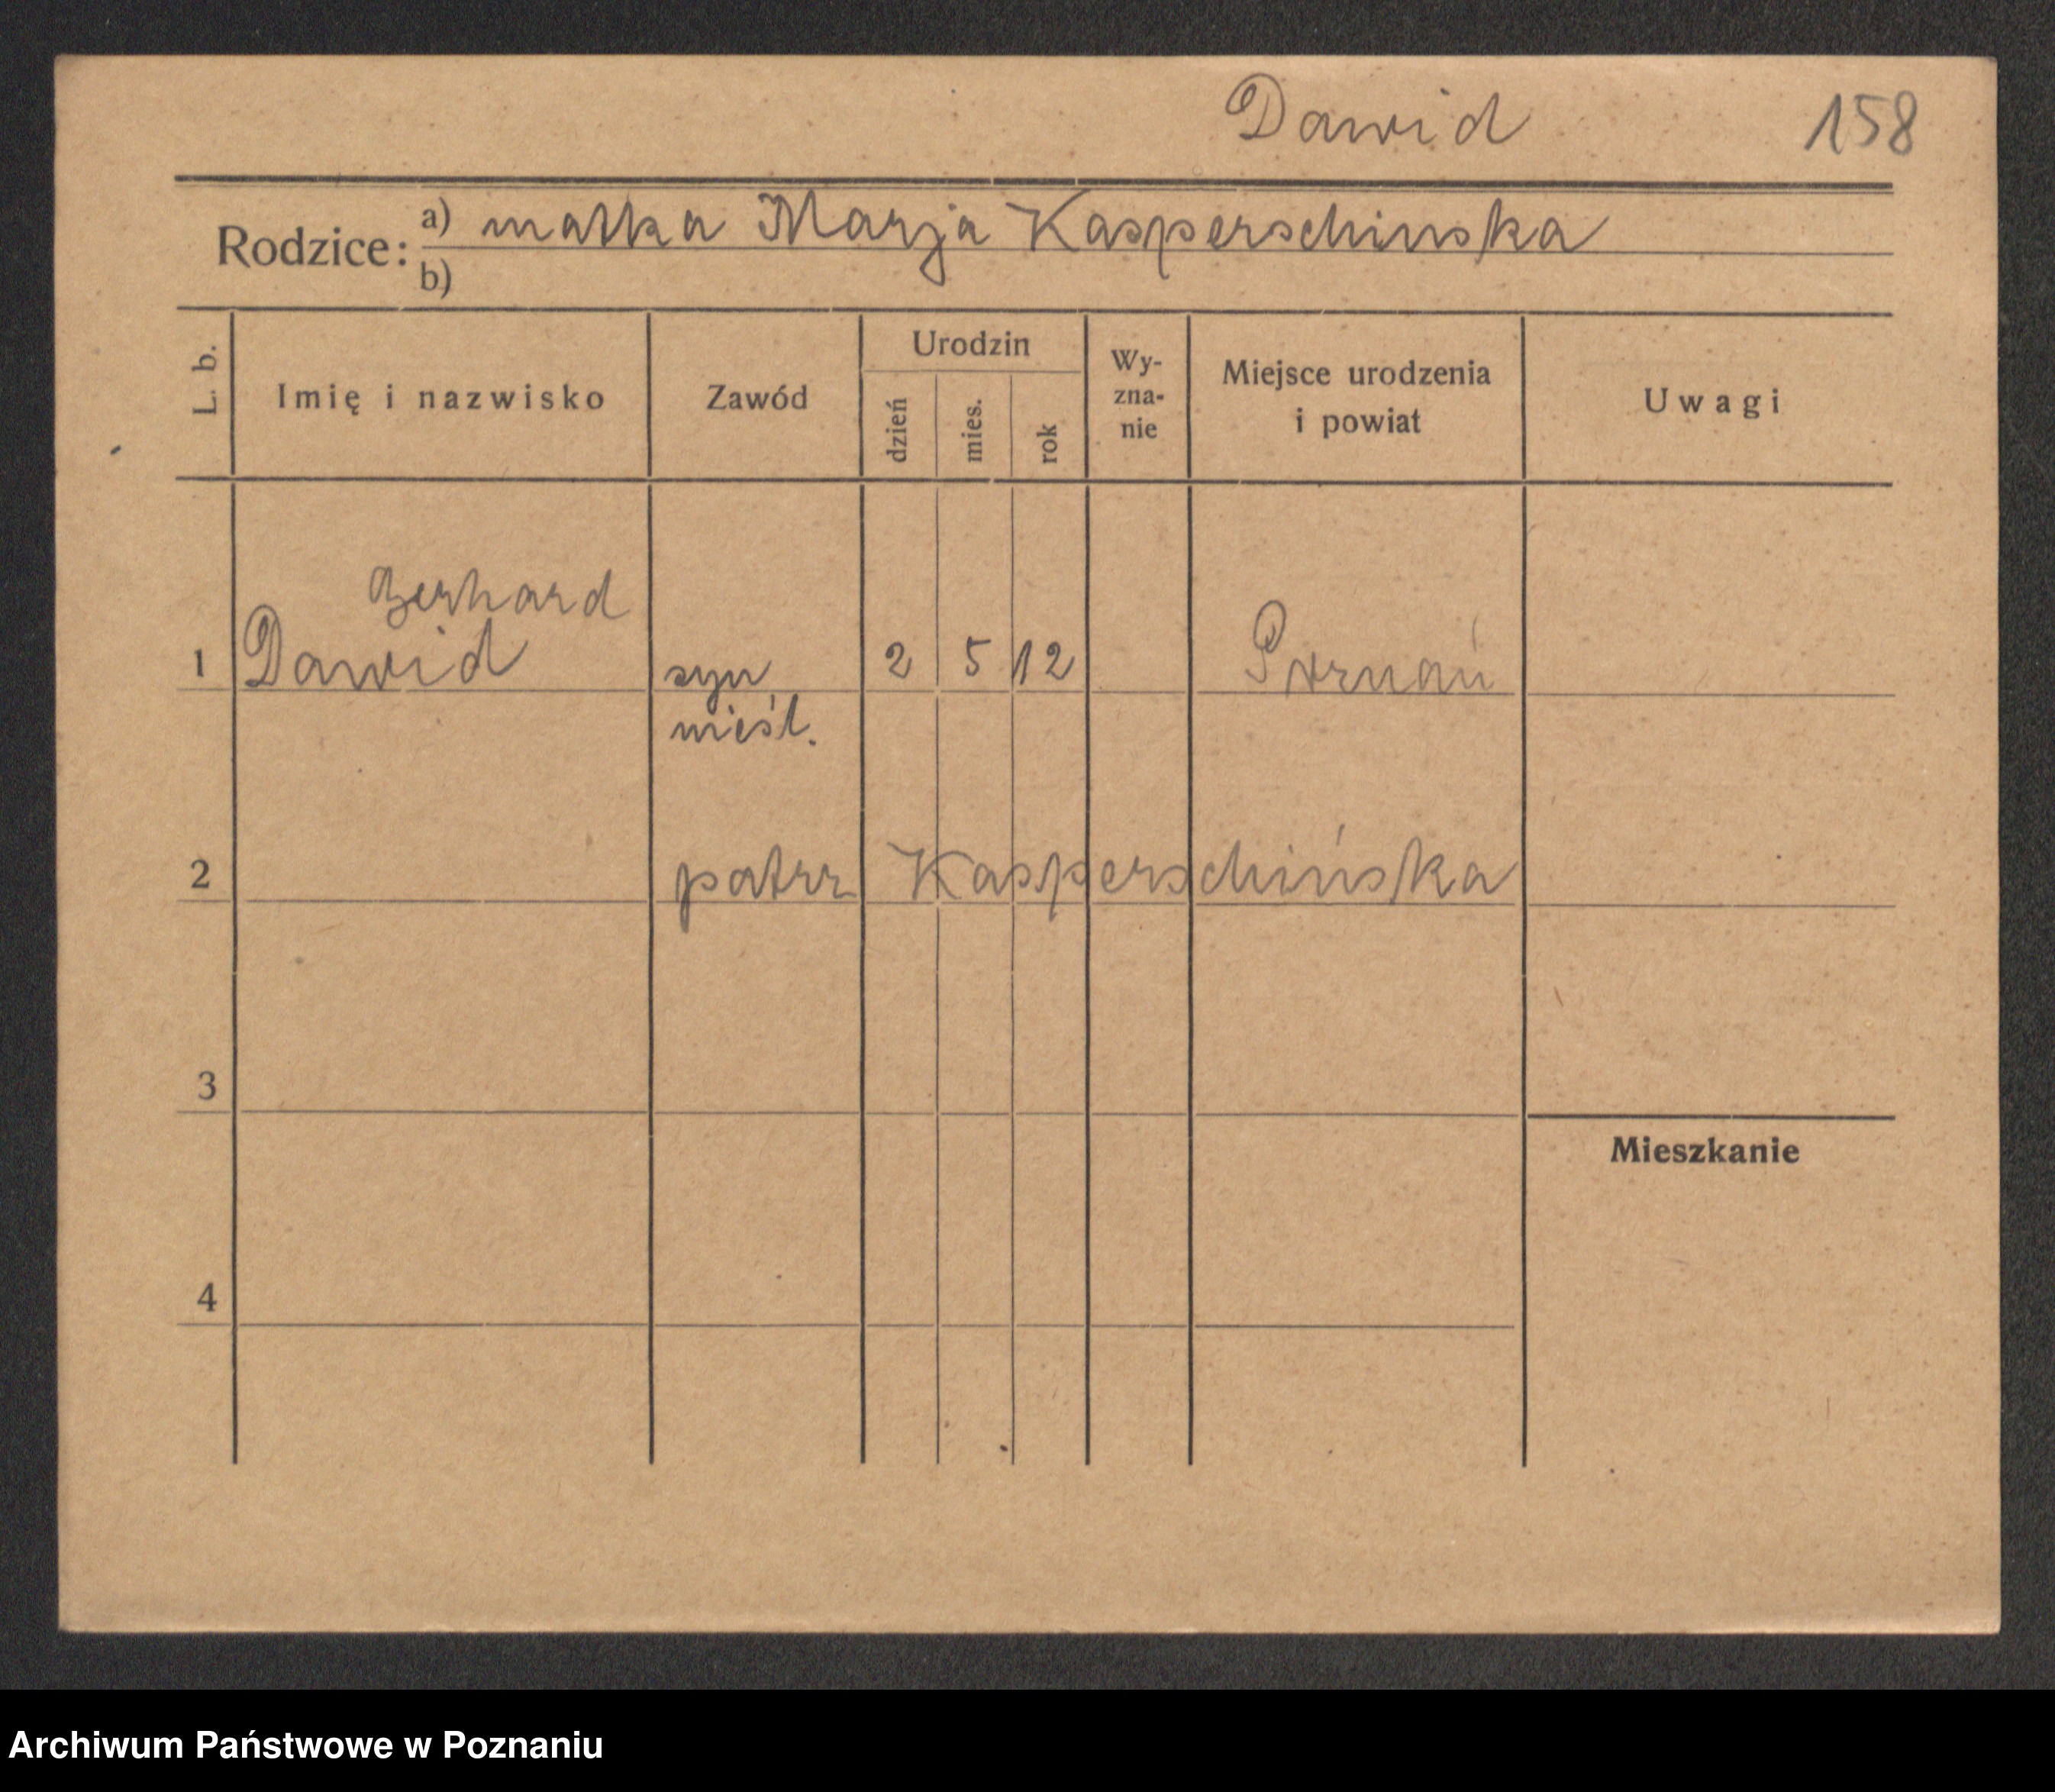 Dawid 158
Rodzice: a) matka Marja Kasperschinska
b)
L. b. Imię i nazwisko Zawód Urodzin dzień mies. rok Wy-zna-nie Miejsce urodzenia i powiat Uwagi
Gerhard
1 Dawid syn 2 5 12 Poznań
nieśl.
2 patrz Kasperschińska
3
Mieszkanie
4
Archiwum Państwowe w Poznaniu